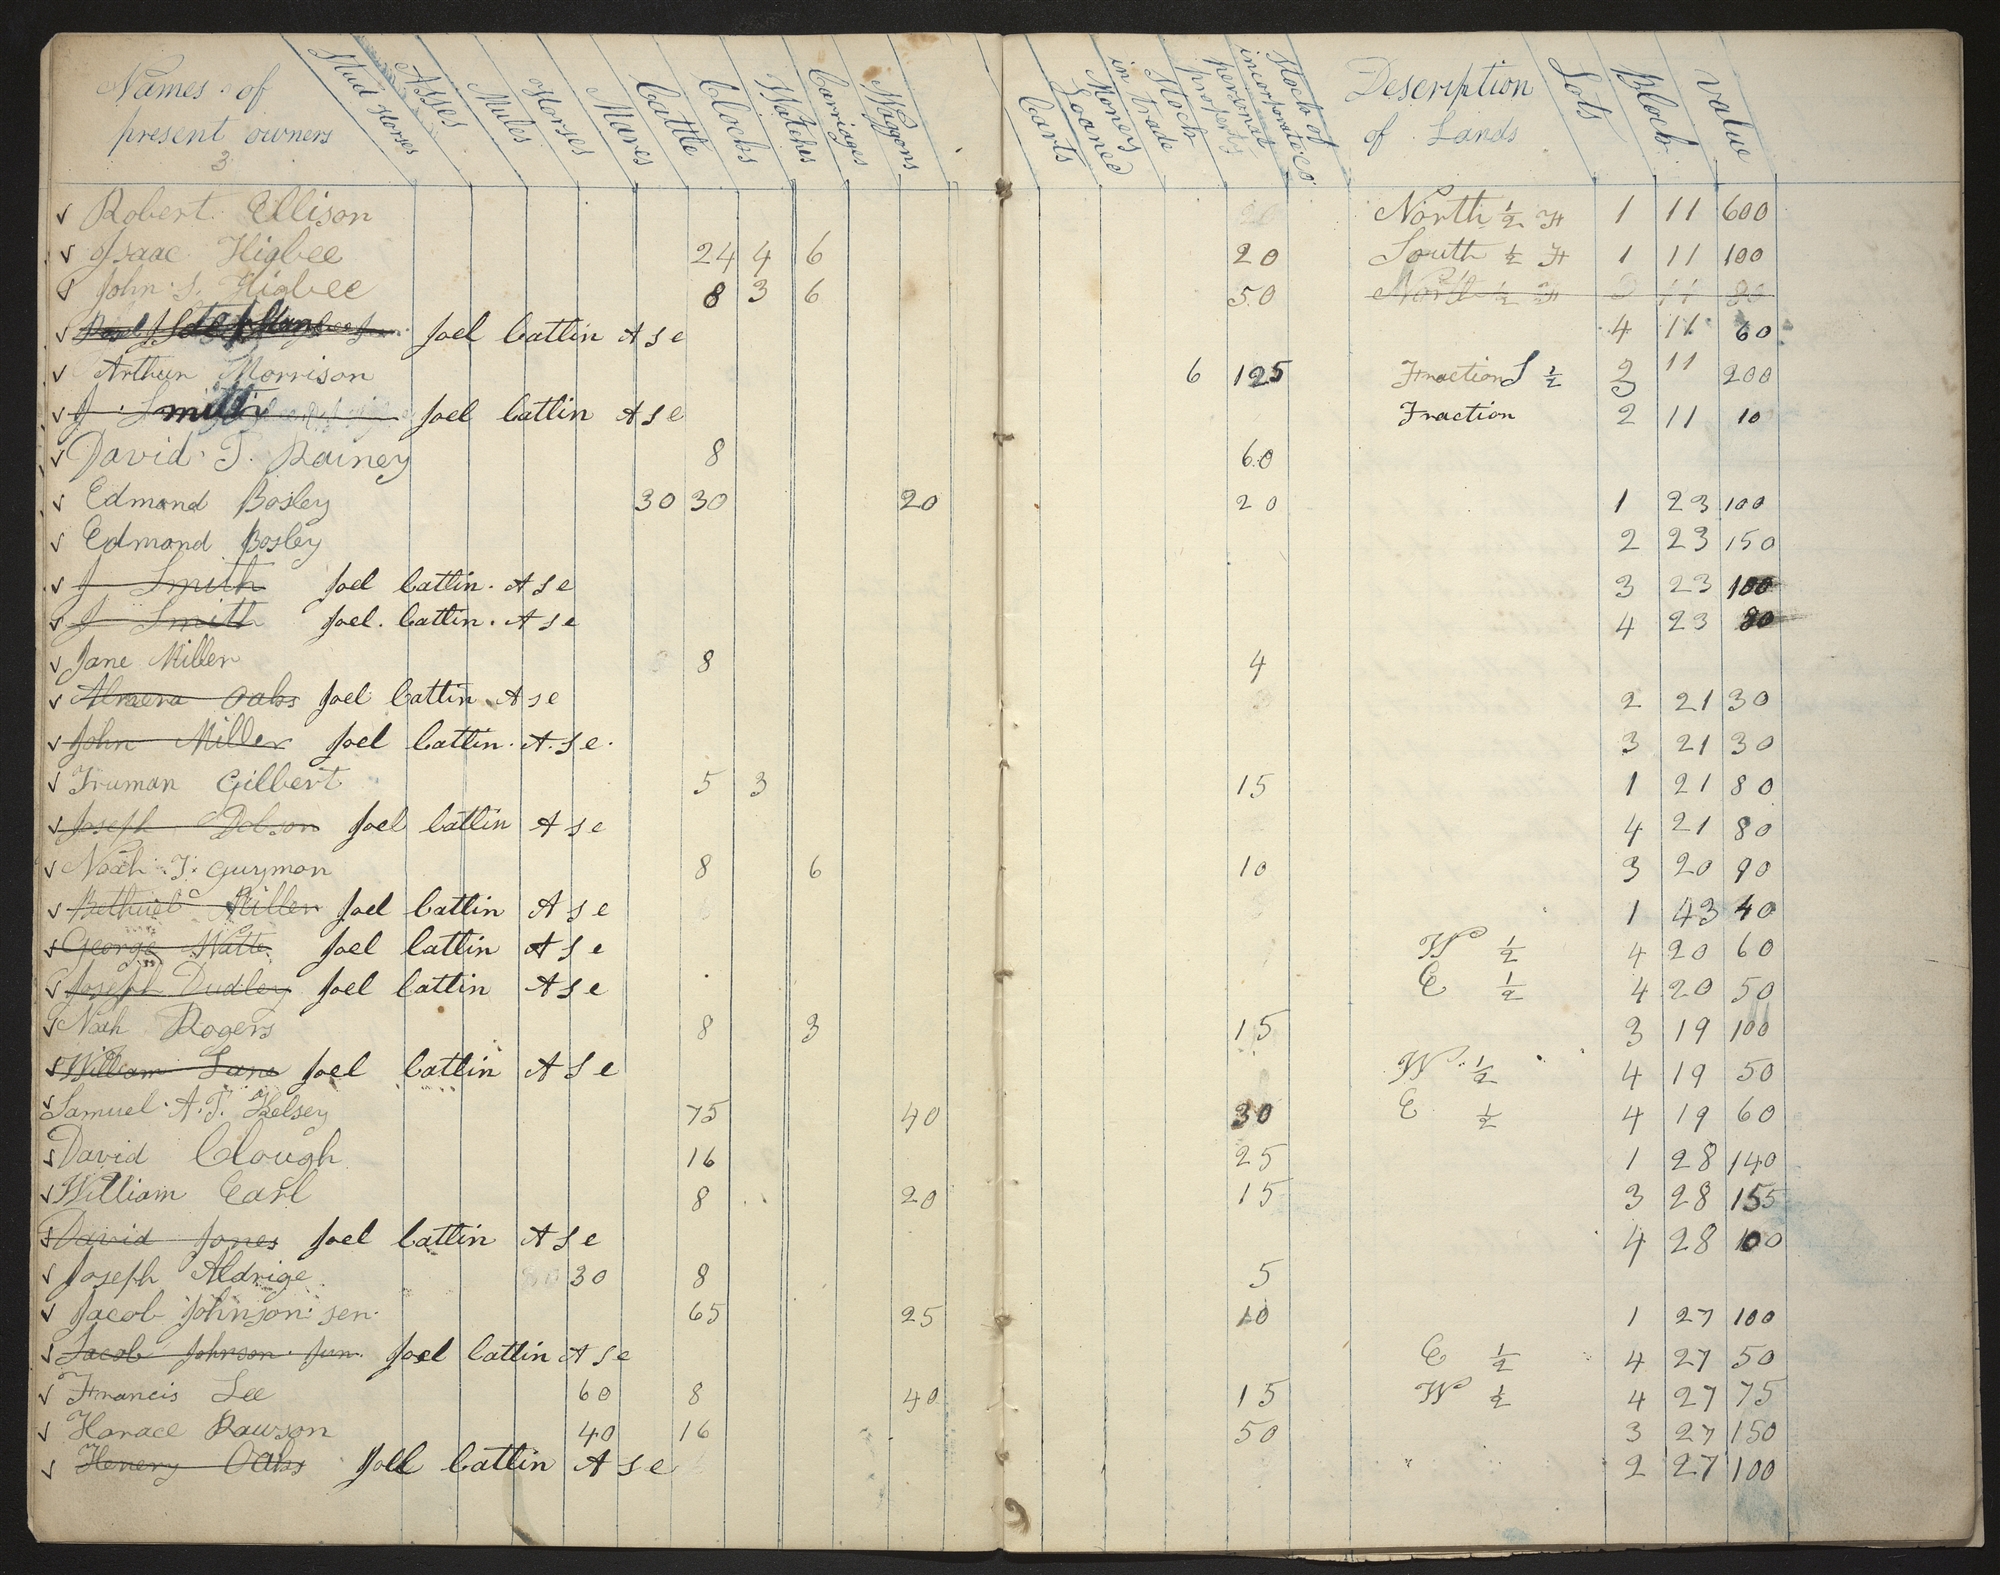 Names of present owners
3
Stud Horses
Asses
Mules
Horses
Mares
Cattle
Clocks
Watches
Carriages
Waggons
Carts
Moneys Loaned
Stock in trade
personal property
Stock of incorporate co
Description of Lands
Lots
Block
Value
√ Robert Ellison North ½ 1 11 600
√ Isaac Higbee 24 4 6 20 South ½ 1 11 100
√ John S. Higbee 8 3 6 50 North ½ 11 80
√ Joel Catlin A s e 4 11 60
√ Arthur Morrison 6 125 Fraction S ½ 3 11 200
√ J Smith Joel Catlin A s e Fraction 2 11 10
√ David T. Rainey 8 60
√ Edmond Bosley 30 30 20 20 1 23 100
√ Edmond Bosley 2 23 150
√ J Smith Joel Catlin. A s e 3 23 100
√ J Smith Joel. Catlin. A s e 4 23 80
√ Jane Miller 8 4
√ Almera Oaks Joel Catlin. A s e 2 21 30
√ John Miller Joel Catlin. A. s. e. 3 21 30
√ Truman Gilbert 5 3 15 1 21 80
√ Joseph Dobson Joel Catlin A s e 4 21 80
√ Noah T. Guymon 8 6 10 3 20 90
√ Bethuel Miller Joel Catlin A s e 1 43 40
√ George Watts Joel Catlin A s e W ½ 4 20 60
√ Joseph Dudley Joel Catlin A s e E ½ 4 20 50
√ Noah Rogers 8 3 15 3 19 100
√ William Lane Joel Catlin A s e W ½ 4 19 50
√ Samuel A. P. Kelsey 75 40 30 E ½ 4 19 60
√ David Clough 16 25 1 28 140
√ William Earl 8 20 15 3 28 155
√ David Jones Joel Catlin A s e 4 28 100
√ Joseph Aldrige 30 8 5
√ Jacob Johnson sen. 65 25 10 1 27 100
√ Jacob Johnson jun. Joel Catlin A s e E ½ 4 27 50
√ Francis Lee 60 8 40 15 W ½ 4 27 75
√ Horace Rawson 40 16 50 3 27 150
√ Henery Oaks Joel Catlin A s e 2 27 100